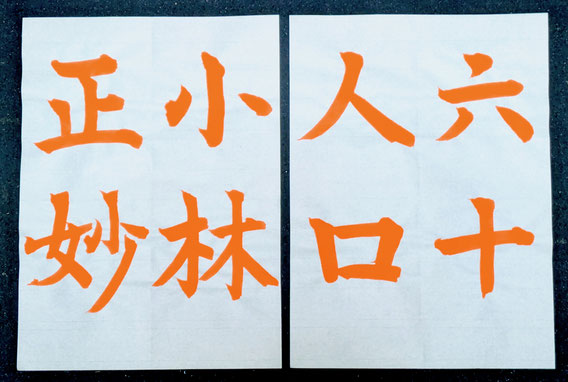 六十
人口
小林
正妙